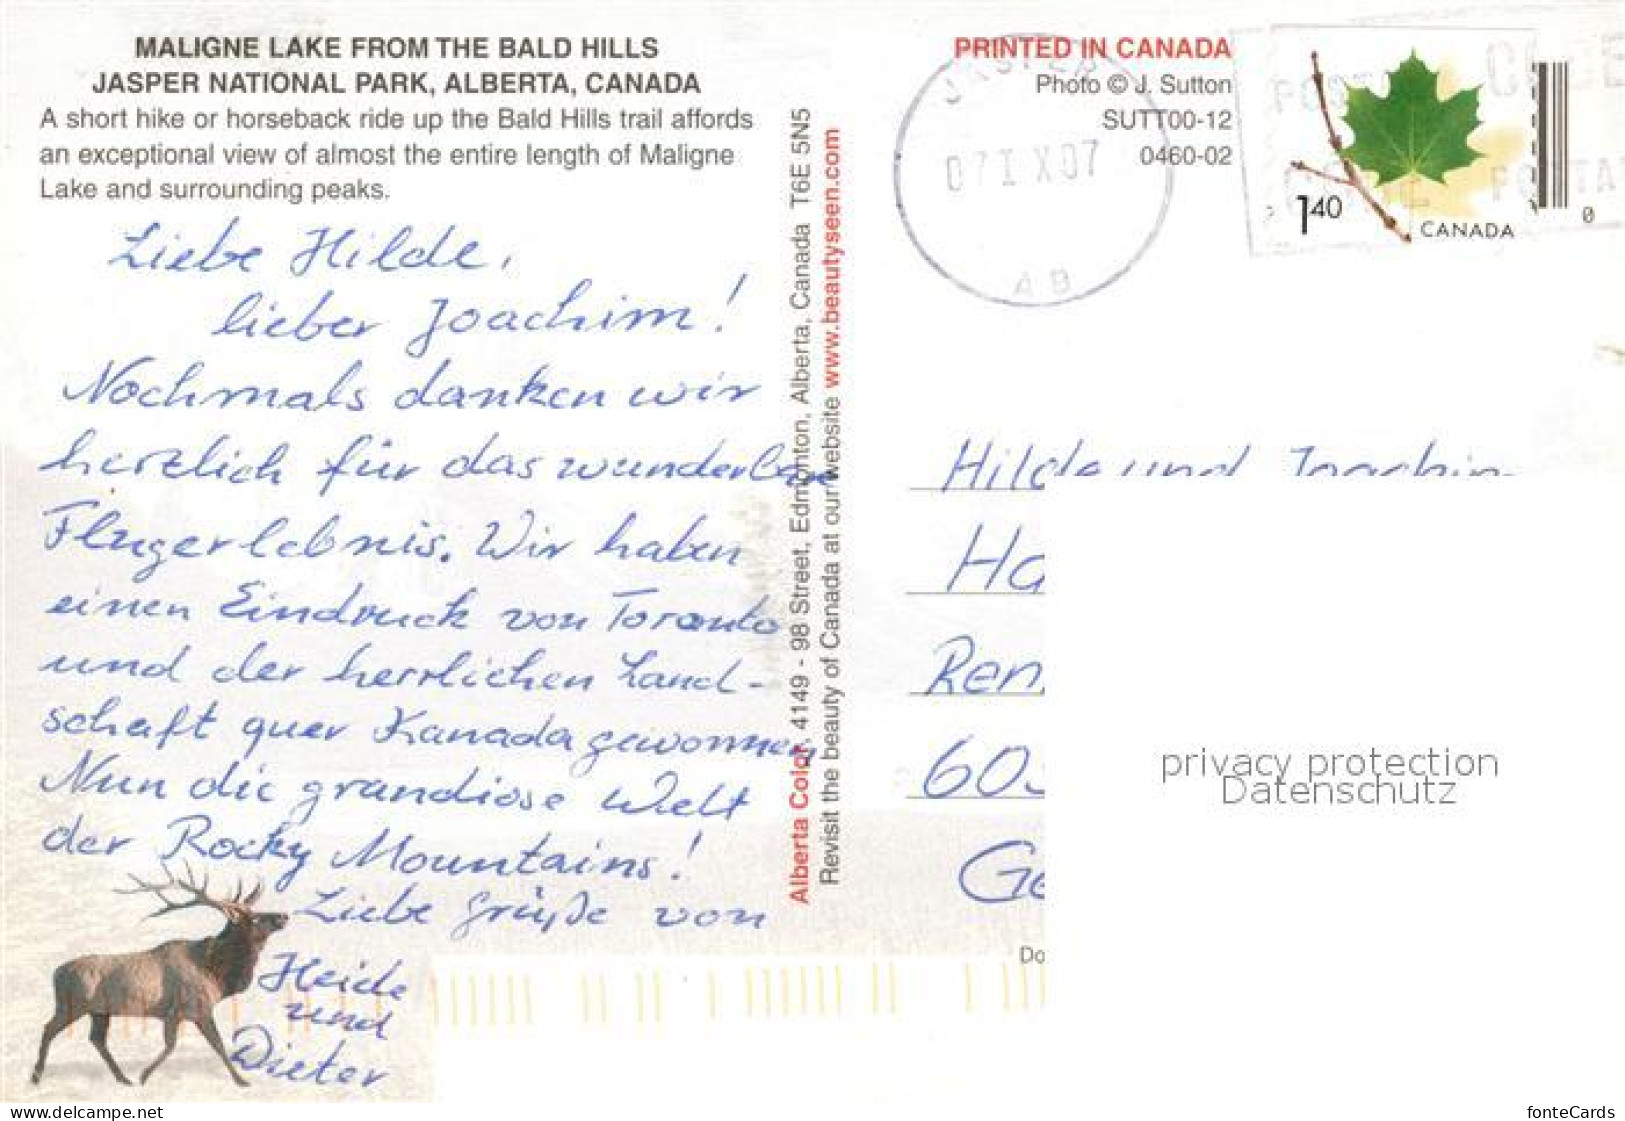 MALIGNE LAKE FROM THE BALD HILLS
JASPER NATIONAL PARK, ALBERTA, CANADA
A short hike or horseback ride up the Bald Hills trail affords
an exceptional view of almost the entire length of Maligne
Lake and surrounding peaks.
Liebe Hilde,
lieber Joachim!
Nochmals danken wir
herzlich für das wunderbare
Flugerlebnis. Wir haben
einen Eindruck von Toronto
und der herrlichen Land-
schaft quer Kanada gewonnen,
Nun die grandiose Welt
der Rocky Mountains!
Liebe Grüße von
Heide
und
Dieter
Alberta Color, 4149 - 98 Street, Edmonton, Alberta, Canada T6E 5N5
Revisit the beauty of Canada at our website www.beautyseen.com
PRINTED IN CANADA
Photo © J. Sutton
SUTT00-12
0460-02
JASPER
07 IX 07
AB
1.40
CANADA
0
Hilde und Joachim
Ha
Ren
60
Ge
Do
privacy protection
Datenschutz
www.delcampe.net
fonteCards